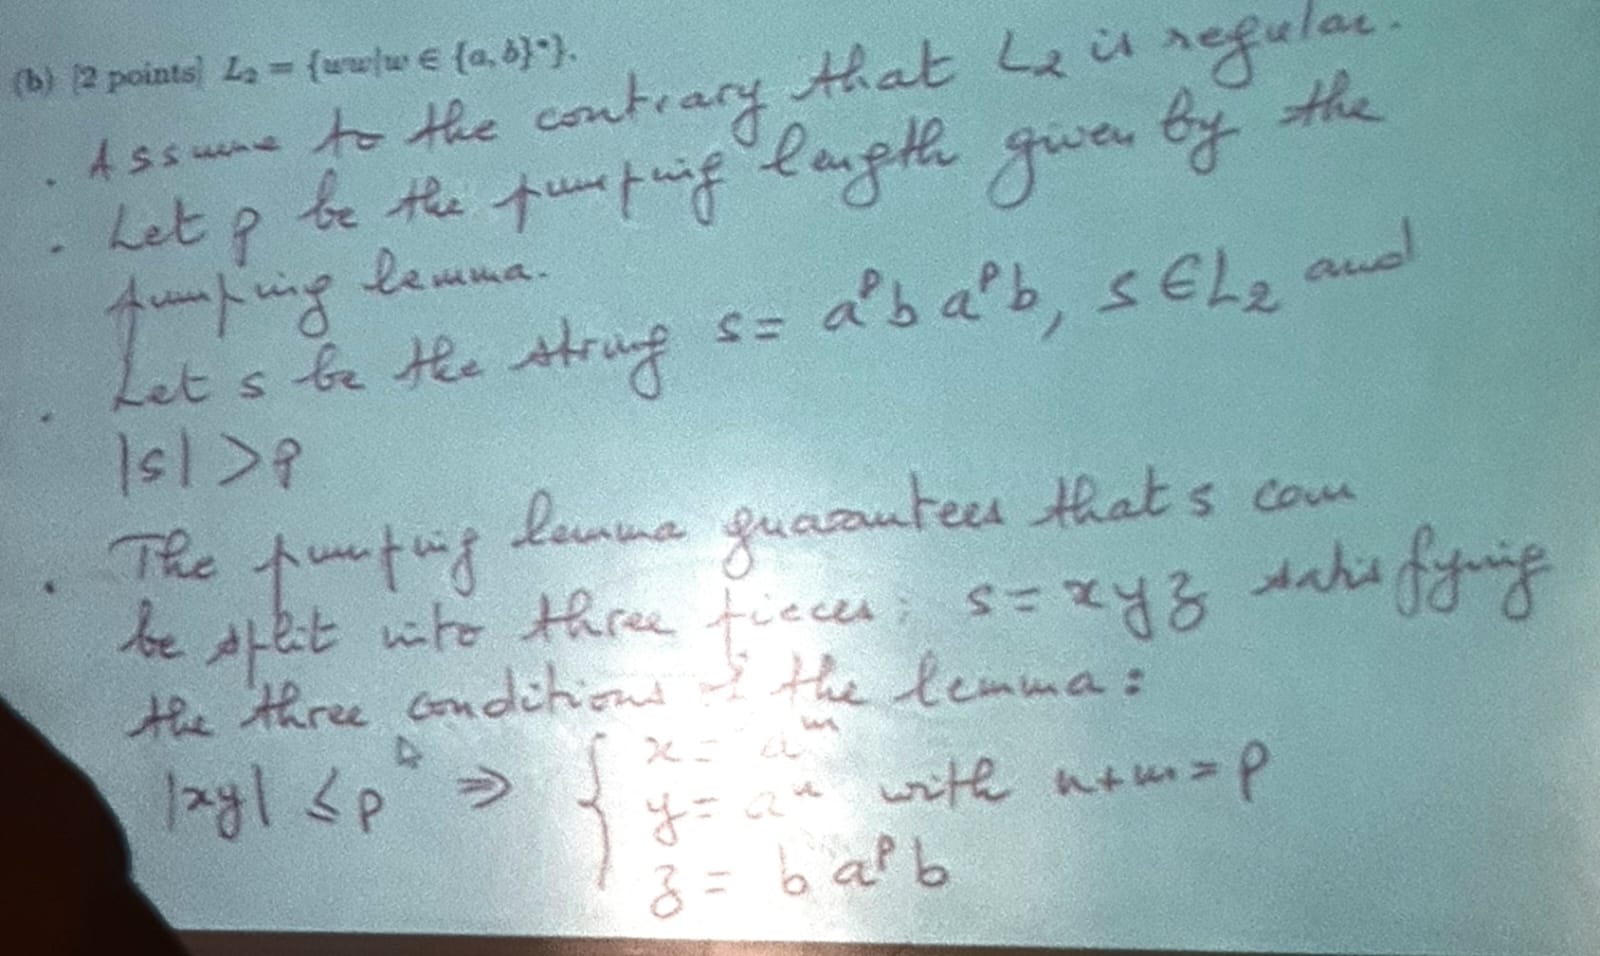 (b) [2 points] L₂ = {ww|w ∈ {a, b}*}.
. Assume to the contrary that L₂ is regular.
. Let p be the pumping length given by the
pumping lemma.
. Let s be the string s = aᵖb aᵖb, s ∈ L₂ and
|s| > p
. The pumping lemma guarantees that s can
be split into three pieces; s = xyz satisfying
the three conditions of the lemma:
|xy| ≤ p ⇒ { x = aᵐ
y = aⁿ with n+m = p
z = b aᵖ b